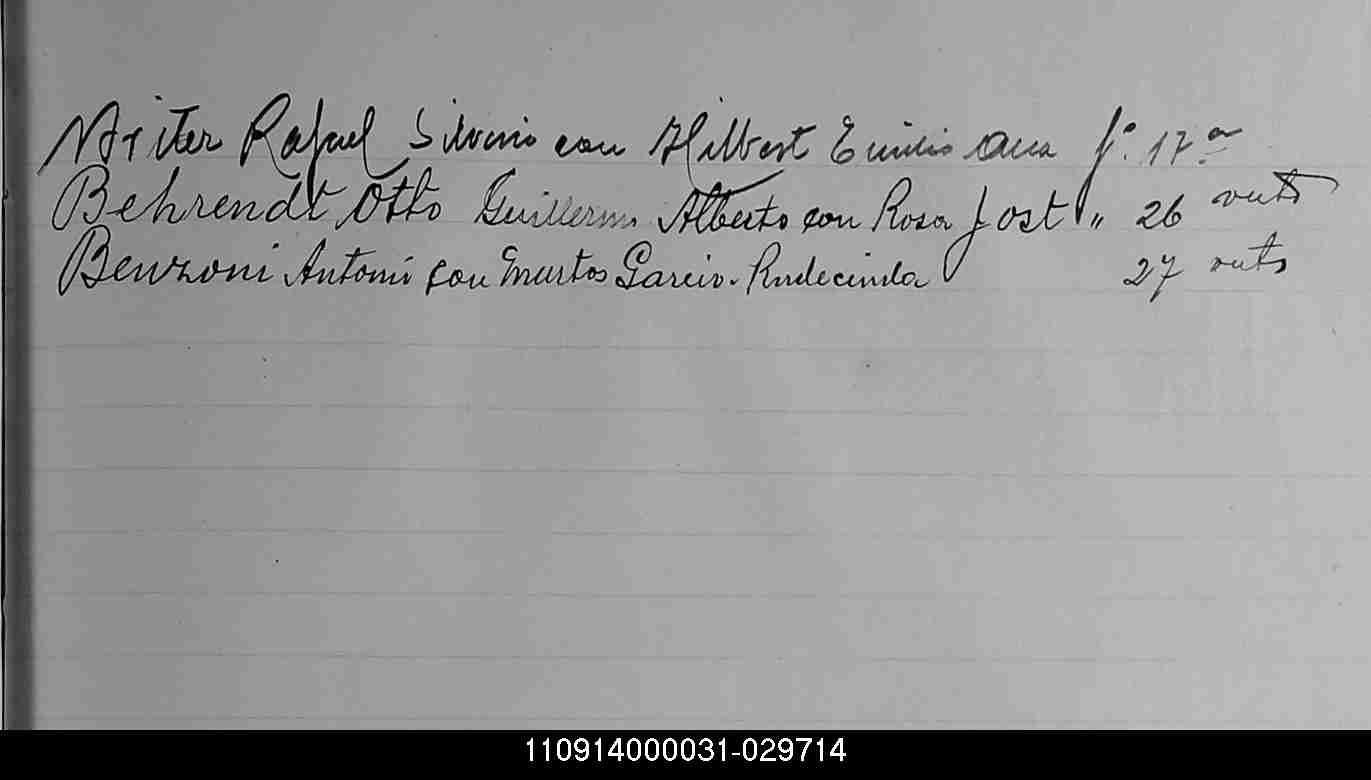 Rafael Silverio con Hilbert Emilio Ana fº. 17 a
Behrendt Otto Guillermo Alberto con Rosa Jost " 26 vuto
Benzoni Antoni con Murtos Garcia. Rudecinda 27 vuto
110914000031-029714